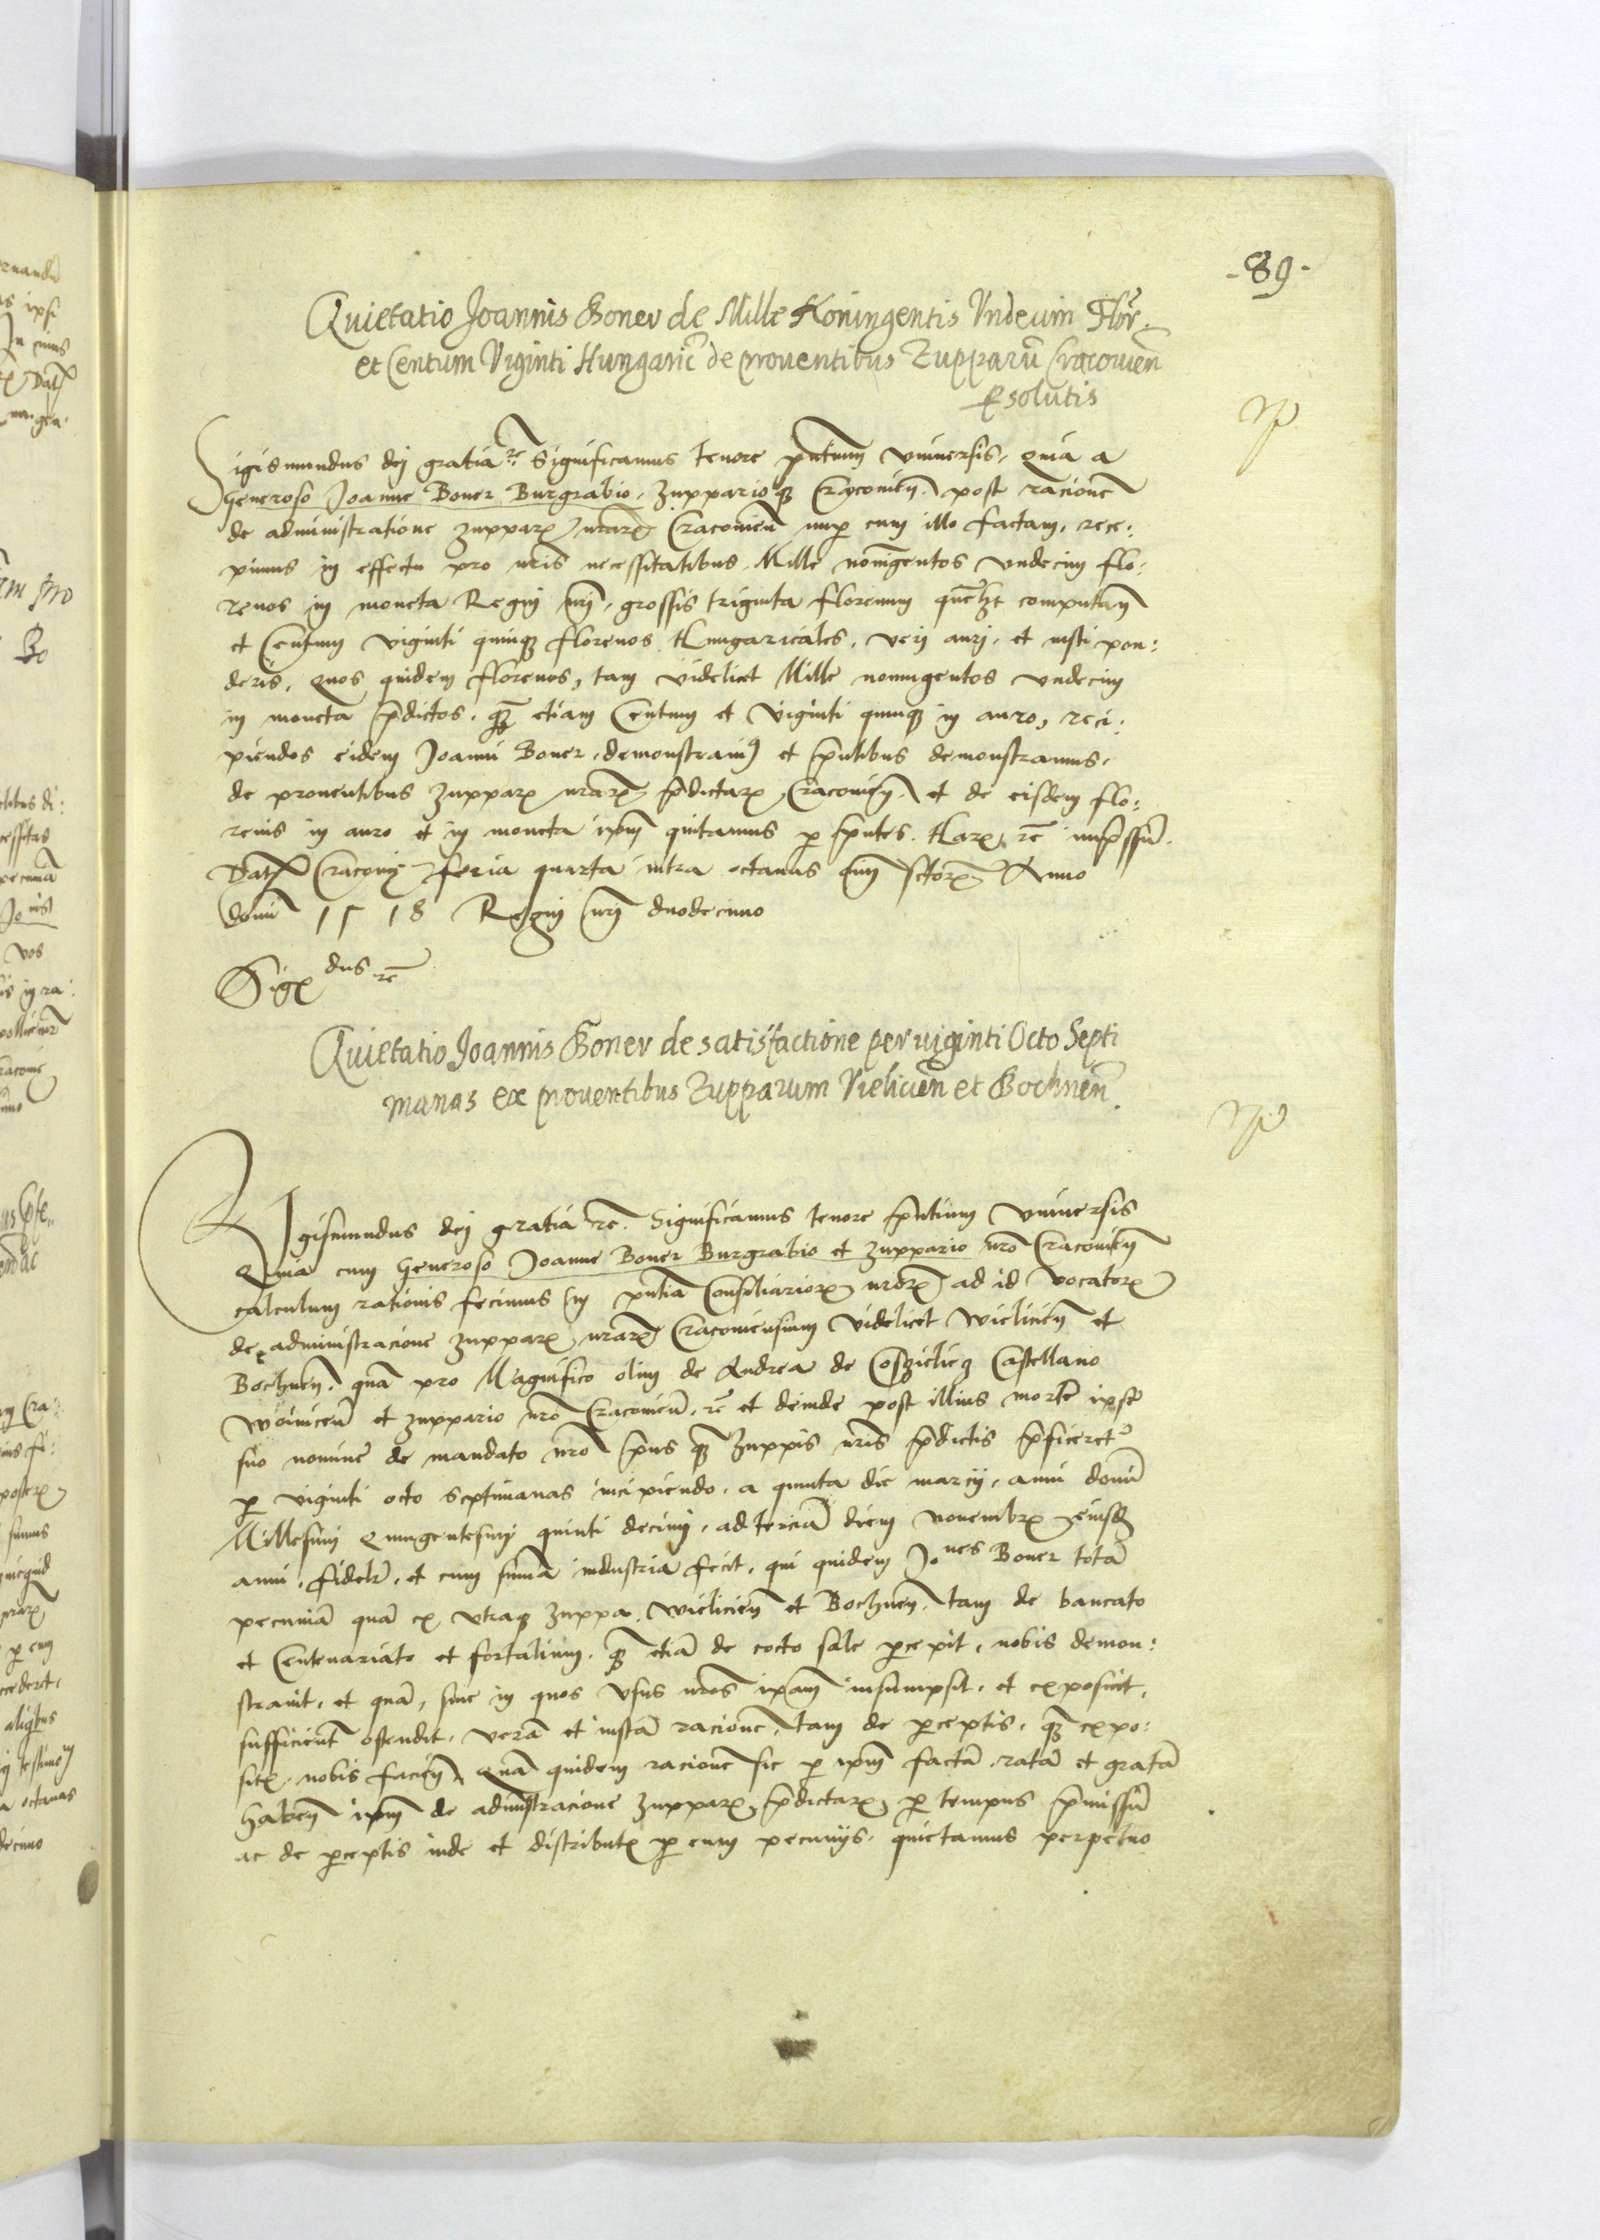 -89-
Quietatio Joannis Boner de Mille Noningentis Undecim Flor.
et Centum Viginti Hungaric de proventibus Zupparu Cracovien
Psolutis
Sigismundus dej gratia rc Significamus tenore pntium Vniuersis, Quia a
Generoso Joanne Boner Burgrabio Zupparioq Cracouien. post racione
de administratione Zuppar nrar Cracouien nup cum illo factam, rece:
pimus in effectu pro nris necessitatibus Mille nonigentos vndecim flo:
renos in moneta Regni nri, grossis triginta florenum quelbt computan
et Centum viginti quinq florenos Hungaricales, veri auri, et iusti pon:
deris, Quos quidem florenos, tam videlicet Mille noningentos vndecim
in moneta pdictos, qz etiam Centum et viginti quinq in auro, reci:
piendos eidem Joanni Boner demonstrauim9 et pntibus demonstramus,
de prouentibus Zuppar nrar pdictar Cracouien. et de eisdem flo:
renis in auro et in moneta ipm quitamus p pntes. Har rc impssu.
Dat Cracouie feria quarta intra octauas omn sctor Anno
domi 1518 Regni nri duodecimo
Sigdus rc
Quietatio Joannis Boner de satisfactione per viginti Octo Septi
manas ex proventibus Zupparum Vielicien et Bochnen.
Sigismundus dej gratia rc. Significamus tenore pntium Vniuersis
Quia cum Generoso Joanne Boner Burgrabio et Zuppario nro Cracouien
calculum rationis fecimus in pntia Consiliarior nror ad id vocator
de administracione Zuppar nrar Cracouiensium videlicet Wielicien et
Bochnen. qua pro Magnifico olim de Andrea de Coszielicz Castellano
Woinicen et Zuppario nro Cracouien. rc et deinde post illius morte ipse
suo nomine de mandato nro pus qz Zuppis nris pdictis pficeret
p viginti octo septimanas incipiendo, a quinta die marcij, anni domi
Millesimi Quingentesimi quinti decimi, ad tercia diem nouembr eiusd
anni, fidelr, et cum suma industria fecit, qui quidem Jones Boner tota
pecunia qua ex vtraq zuppa Wielicien et Bochnen. tam de bancato
et Centenariato et fortalium, qz etia de cocto sale pcepit, nobis demon:
strauit, et qua, siue in quos vsus nros ipam insumpsit, et exposuit,
sufficient ostendit, vera et iusta racione, tam de pceptis, qz expo:
sit, nobis facien Qua quidem racione sic p ipm facta rata et grata
haben ipm de administracione Zuppar pdictar p tempus pmissu
ac de pceptis inde et distribut p eum pecunijs, quietamus perpetuo